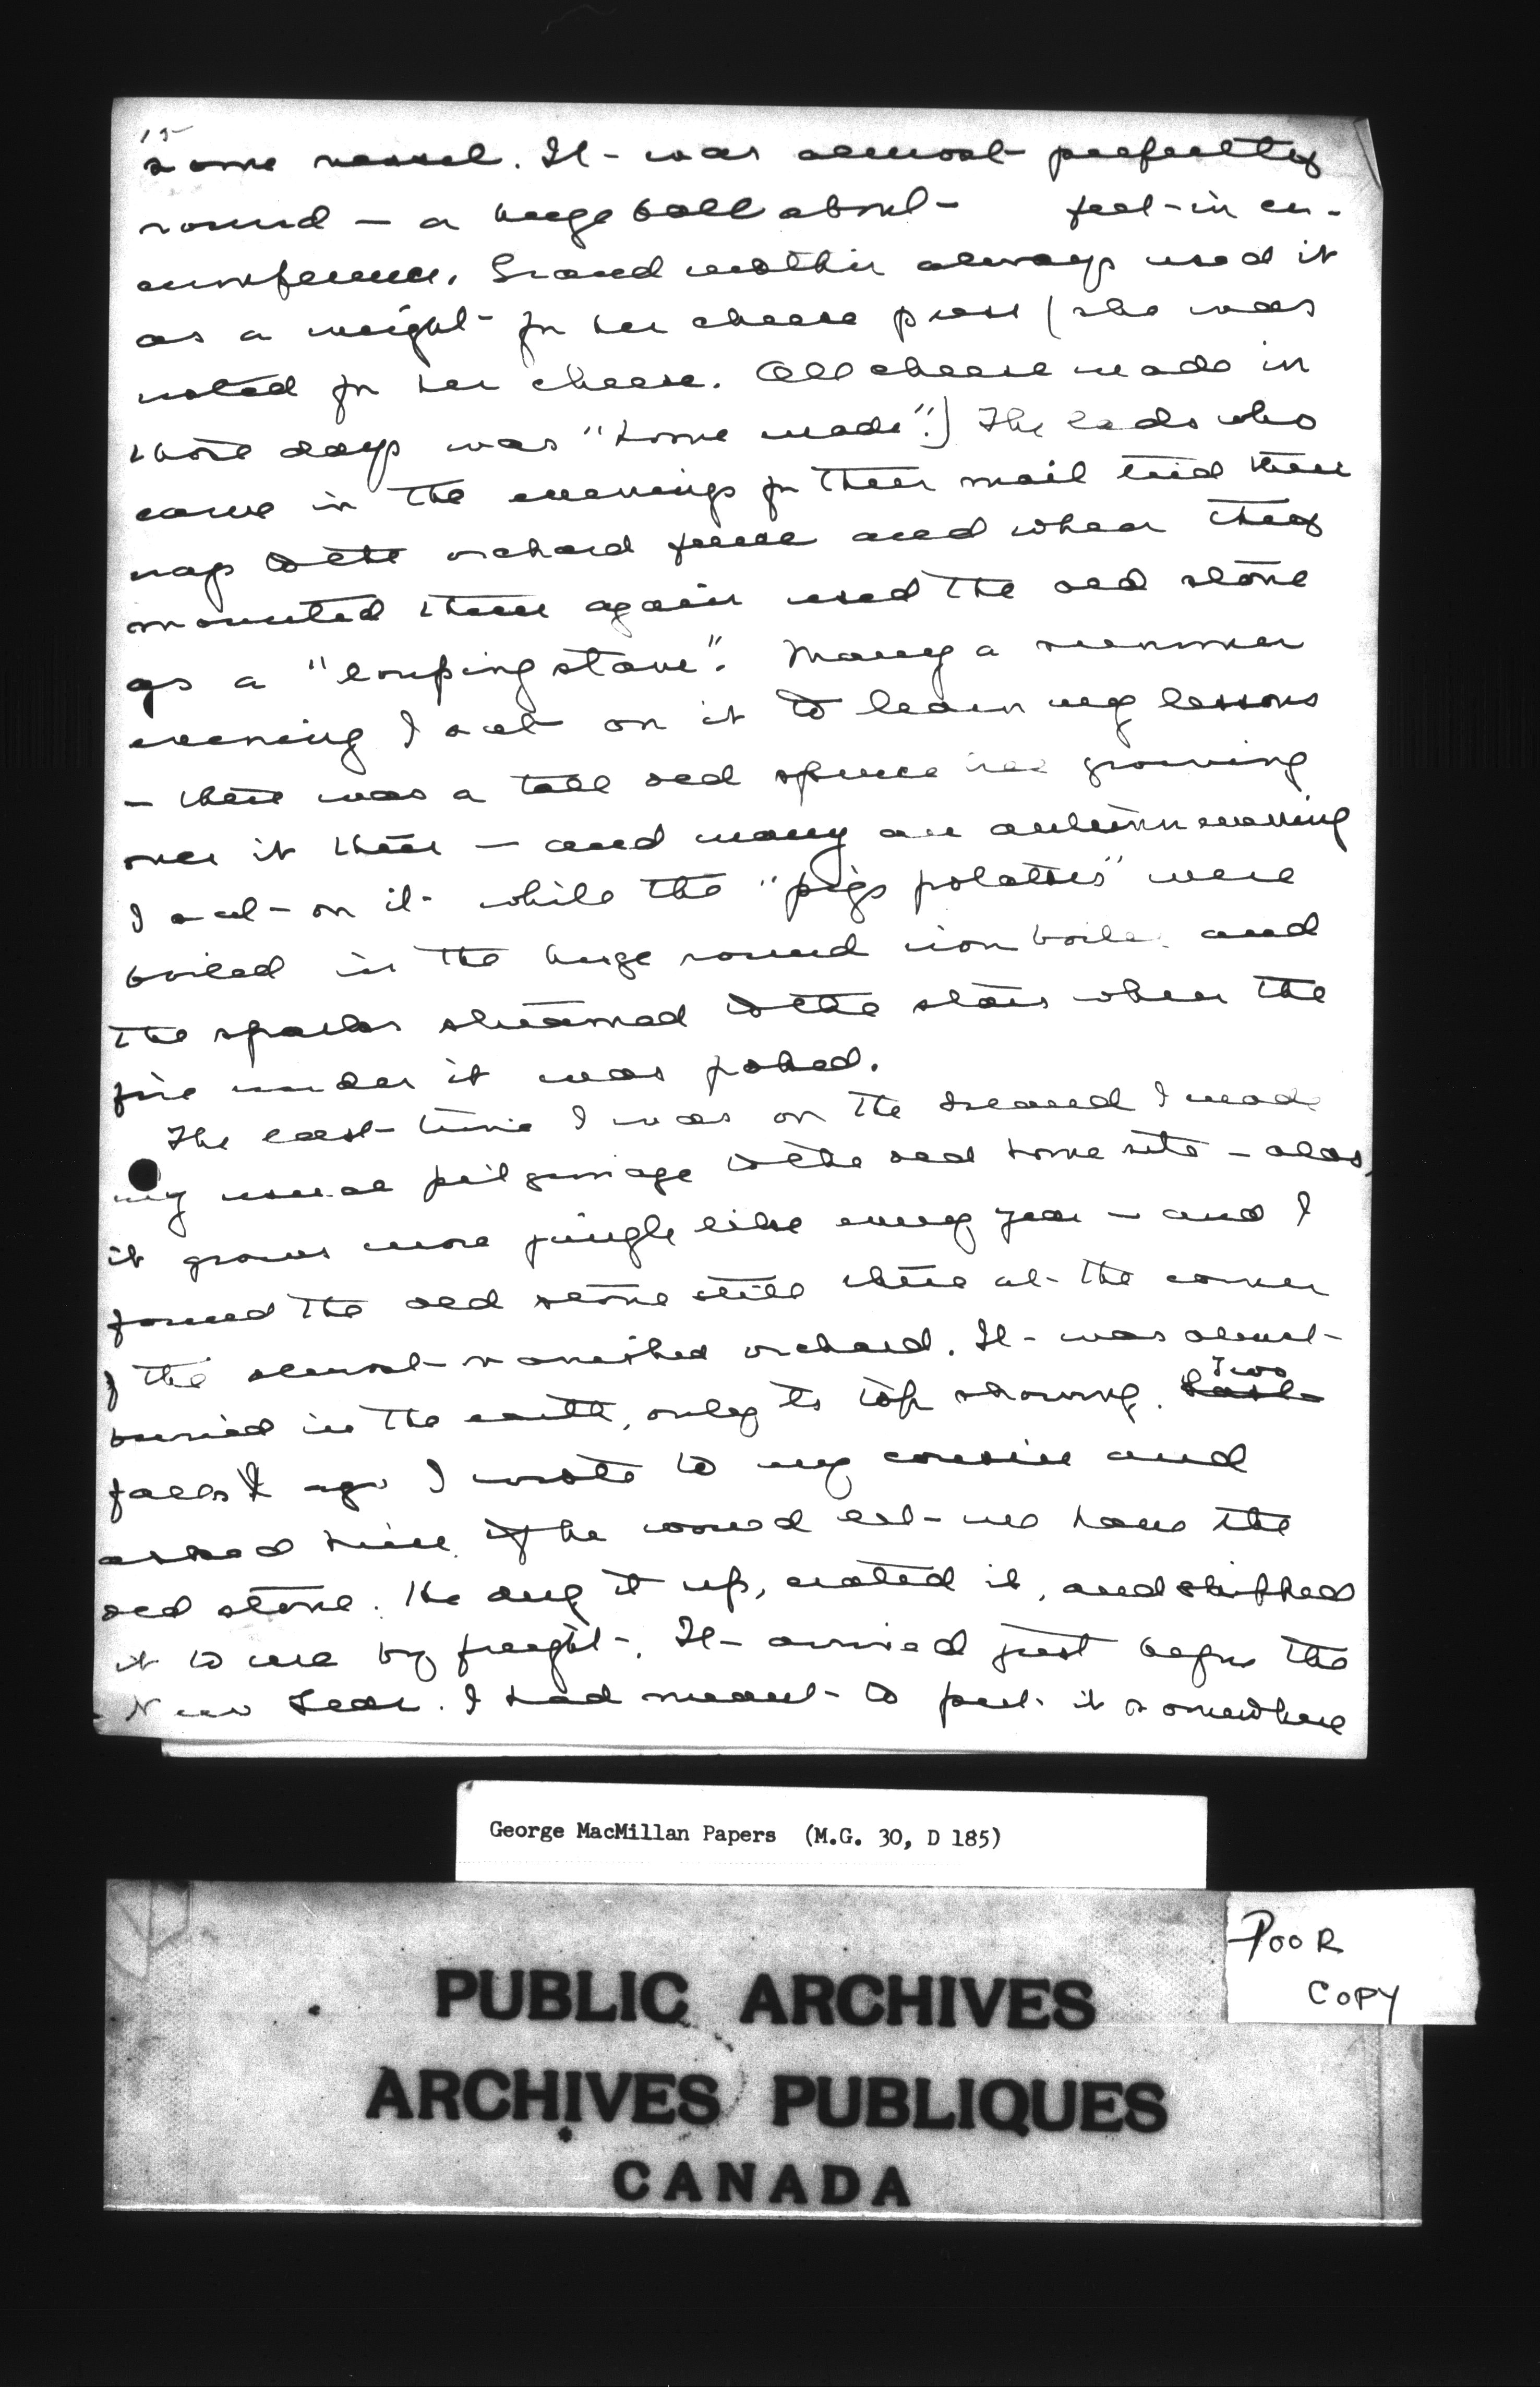 15
some vessel. It was almost perfectly
round – a huge ball about feet in cir-
cumference. Grandmother always used it
as a weight for her cheese press (she was
noted for her cheese. All cheese made in
those days was "home made".) The lads who
came in the evenings for their mail tied their
nags to the orchard fence and when they
mounted them again used the old stone
as a "louping stone". Many a summer
evening I sat on it to learn my lessons
– there was a tall old spruce tree growing
over it then – and many an autumn evening
I sat on it while the "pigs potatoes" were
boiled in the huge round iron boiler and
the sparks streamed to the stars when the
fire under it was poked.
The last time I was on the Island I made
my usual pilgrimage to the old home site – alas,
it grows more jungle like every year – and I
found the old stone still there at the corner
of the almost vanished orchard. It was almost
buried in the earth, only its top showing. Two
falls ago I wrote to my cousin and
asked him if he would let me have the
old stone. He dug it up, crated it, and shipped
it to me by freight. It arrived just before the
New Year. I had meant to put it somewhere
George MacMillan Papers (M.G. 30, D 185)
POOR
COPY
PUBLIC ARCHIVES
ARCHIVES PUBLIQUES
CANADA